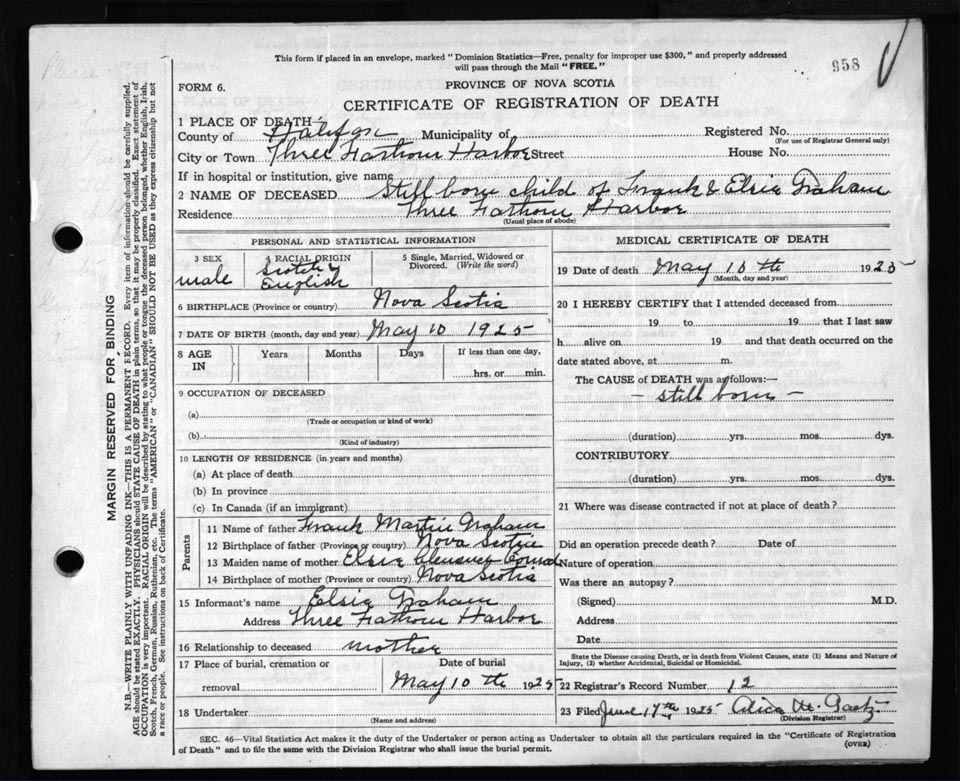 This form if placed in an envelope, marked "Dominion Statistics—Free, penalty for improper use $300," and properly addressed
will pass through the Mail "FREE."
958
FORM 6.
PROVINCE OF NOVA SCOTIA
CERTIFICATE OF REGISTRATION OF DEATH
1 PLACE OF DEATH—
County of Halifax Municipality of Registered No.
(For use of Registrar General only)
City or Town Three Fathom Harbor Street House No.
If in hospital or institution, give name
2 NAME OF DECEASED Still born child of Frank & Elsie Graham
Residence Three Fathom Harbor
(Usual place of abode)
PERSONAL AND STATISTICAL INFORMATION
3 SEX 4 RACIAL ORIGIN 5 Single, Married, Widowed or Divorced. (Write the word)
male Scotch & English
6 BIRTHPLACE (Province or country) Nova Scotia
7 DATE OF BIRTH (month, day and year) May 10 1925
8 AGE IN Years Months Days If less than one day,
hrs. or min.
9 OCCUPATION OF DECEASED
(a)
(Trade or occupation or kind of work)
(b)
(Kind of industry)
10 LENGTH OF RESIDENCE (in years and months)
(a) At place of death
(b) In province
(c) In Canada (if an immigrant)
Parents
11 Name of father Frank Martin Graham
12 Birthplace of father (Province or country) Nova Scotia
13 Maiden name of mother Elsie
14 Birthplace of mother (Province or country) Nova Scotia
15 Informant's name Elsie Graham
Address Three Fathom Harbor
16 Relationship to deceased mother
17 Place of burial, cremation or removal Date of burial
May 10 th 1925
18 Undertaker
(Name and address)
MEDICAL CERTIFICATE OF DEATH
19 Date of death May 10 th 1925
(Month, day and year)
20 I HEREBY CERTIFY that I attended deceased from
19 to 19 that I last saw
h alive on 19 and that death occurred on the
date stated above, at m.
The CAUSE of DEATH was as follows:—
— still born —
(duration) yrs. mos. dys.
CONTRIBUTORY
(duration) yrs. mos. dys.
21 Where was disease contracted if not at place of death?
Did an operation precede death? Date of
Nature of operation
Was there an autopsy?
(Signed) M.D.
Address
Date
State the Disease causing Death, or in death from Violent Causes, state (1) Means and Nature of
Injury, (2) whether Accidental, Suicidal or Homicidal.
22 Registrar's Record Number 12
23 Filed June 17th 1925 Alice M. Gaetz
(Division Registrar)
SEC. 46—Vital Statistics Act makes it the duty of the Undertaker or person acting as Undertaker to obtain all the particulars required in the "Certificate of Registration
of Death" and to file the same with the Division Registrar who shall issue the burial permit.
(OVER)
MARGIN RESERVED FOR BINDING
N.B.—WRITE PLAINLY WITH UNFADING INK—THIS IS A PERMANENT RECORD. Every item of information should be carefully supplied.
AGE should be stated EXACTLY. PHYSICIANS should STATE CAUSE OF DEATH in plain terms, so that it may be properly classified. Exact statement of
OCCUPATION is very important. RACIAL ORIGIN will be described by stating to what people or tongue the deceased person belonged, whether English, Irish,
Scotch, French, German, Russian, Ruthenian, etc. The terms "AMERICAN" or "CANADIAN" SHOULD NOT BE USED as they express citizenship but not
a race or people. See instructions on back of Certificate.